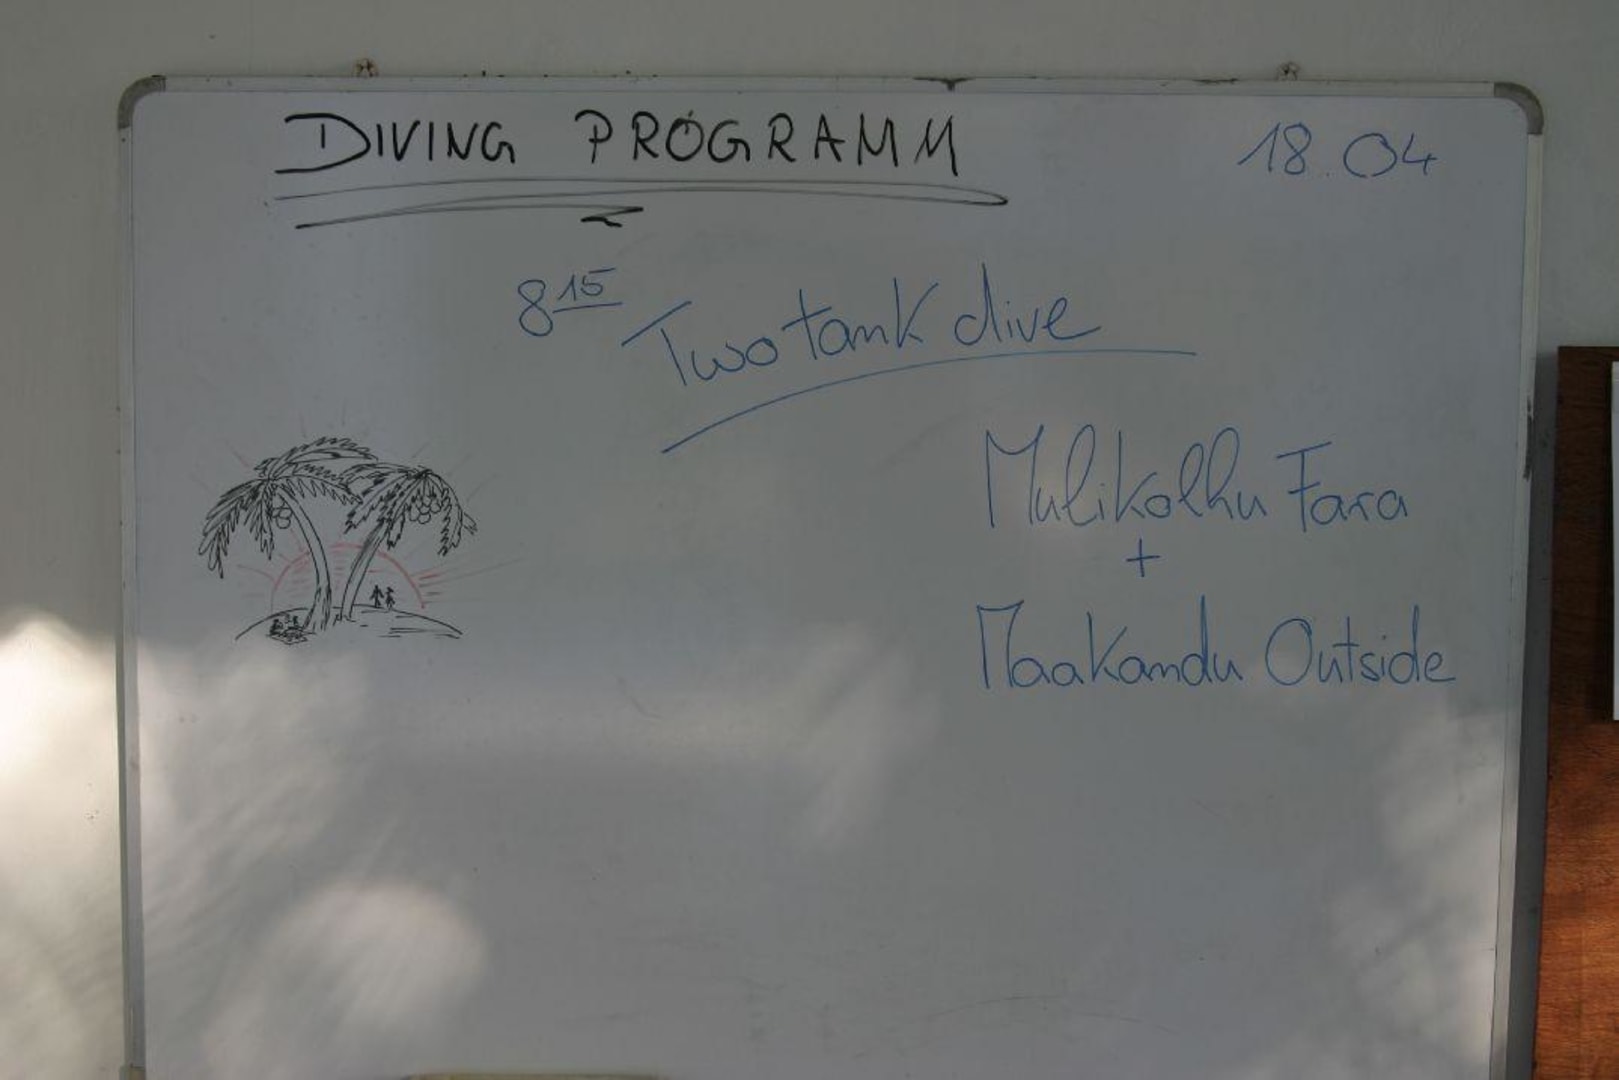 DIVING PROGRAMM 18.04
8 15 Two tank dive
Mulikolhu Fara
+
Maakandu Outside